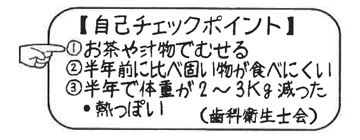 【自己チェックポイント】
①お茶や汁物でむせる
②半年前に比べ固い物が食べにくい
③半年で体重が2～3Kg減った
•熱っぽい (歯科衛生士会)